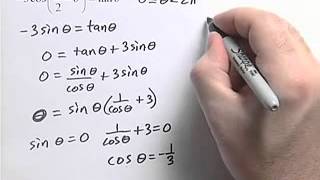 -3 sin θ = tan θ
0 = tan θ + 3 sin θ
0 = sin θ / cos θ + 3 sin θ
0 = sin θ ( 1 / cos θ + 3 )
sin θ = 0   1 / cos θ + 3 = 0
cos θ = - 1 / 3
Sharpie